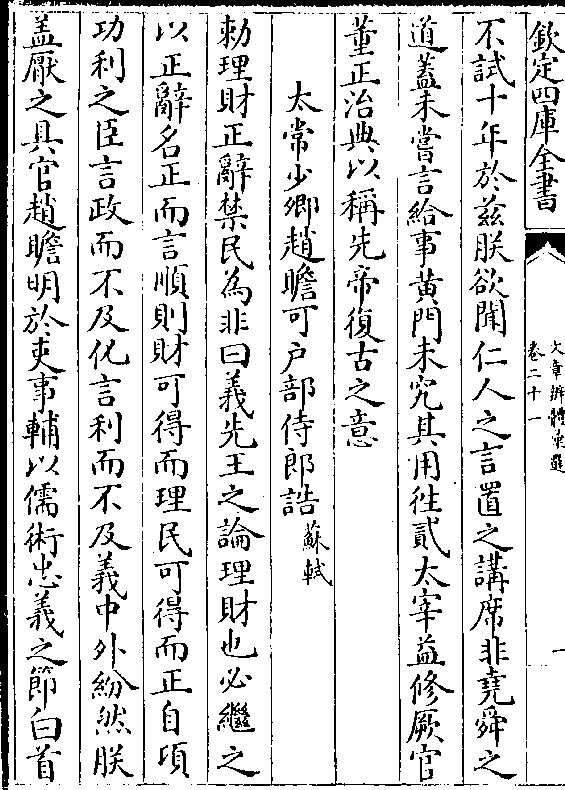 欽定四庫全書
文章辨體彙選
卷二十一
一
不試十年於兹朕欲聞仁人之言置之講席非堯舜之
道蓋未嘗言給事黄門未究其用徃貳太宰益修厥官
董正治典以稱先帝復古之意
太常少卿趙瞻可户部侍郎誥蘇軾
勅理財正辭禁民為非曰義先王之論理財也必繼之
以正辭名正而言順則財可得而理民可得而正自頃
功利之臣言政而不及化言利而不及義中外紛然朕
盖厭之具官趙瞻明於吏事輔以儒術忠義之節白首